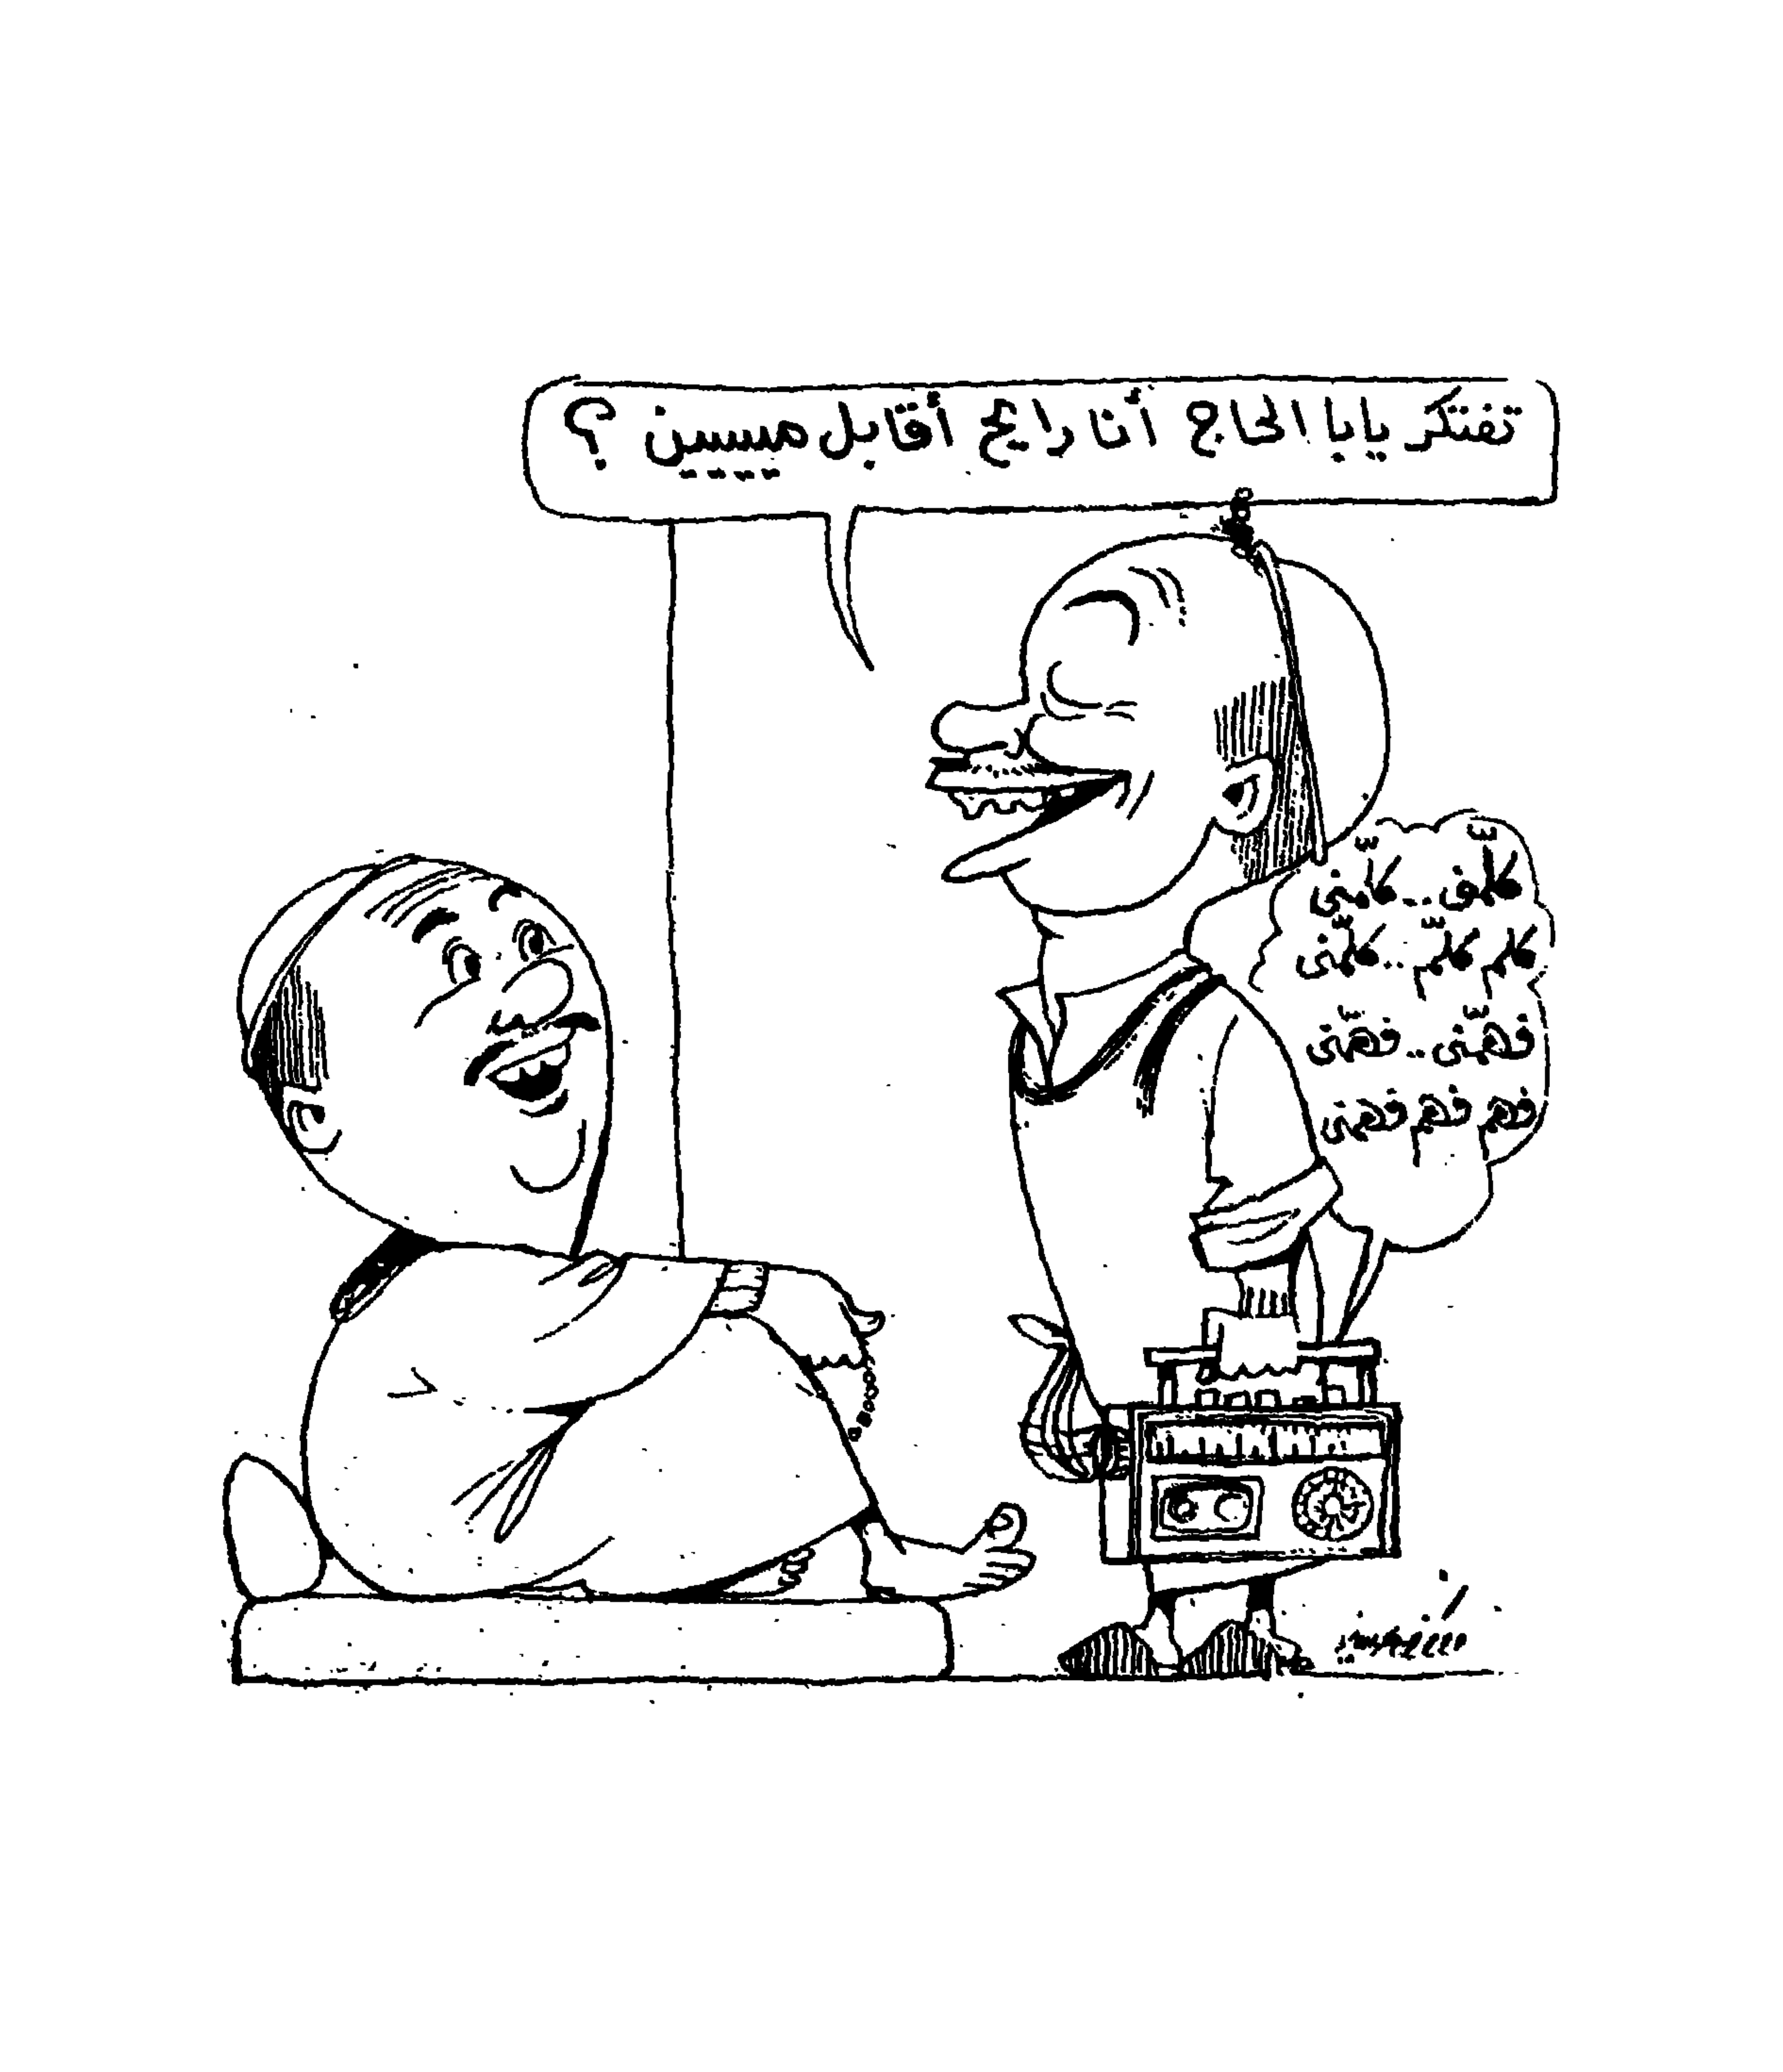 تفتكر يابا الحاج أنا رايح أقابل ميييين ؟
كلّمنى.. كلّمنى
كلم كلّم.. كلّمنى
فهّمنى.. فهّمنى
فهم فهم فهمنى